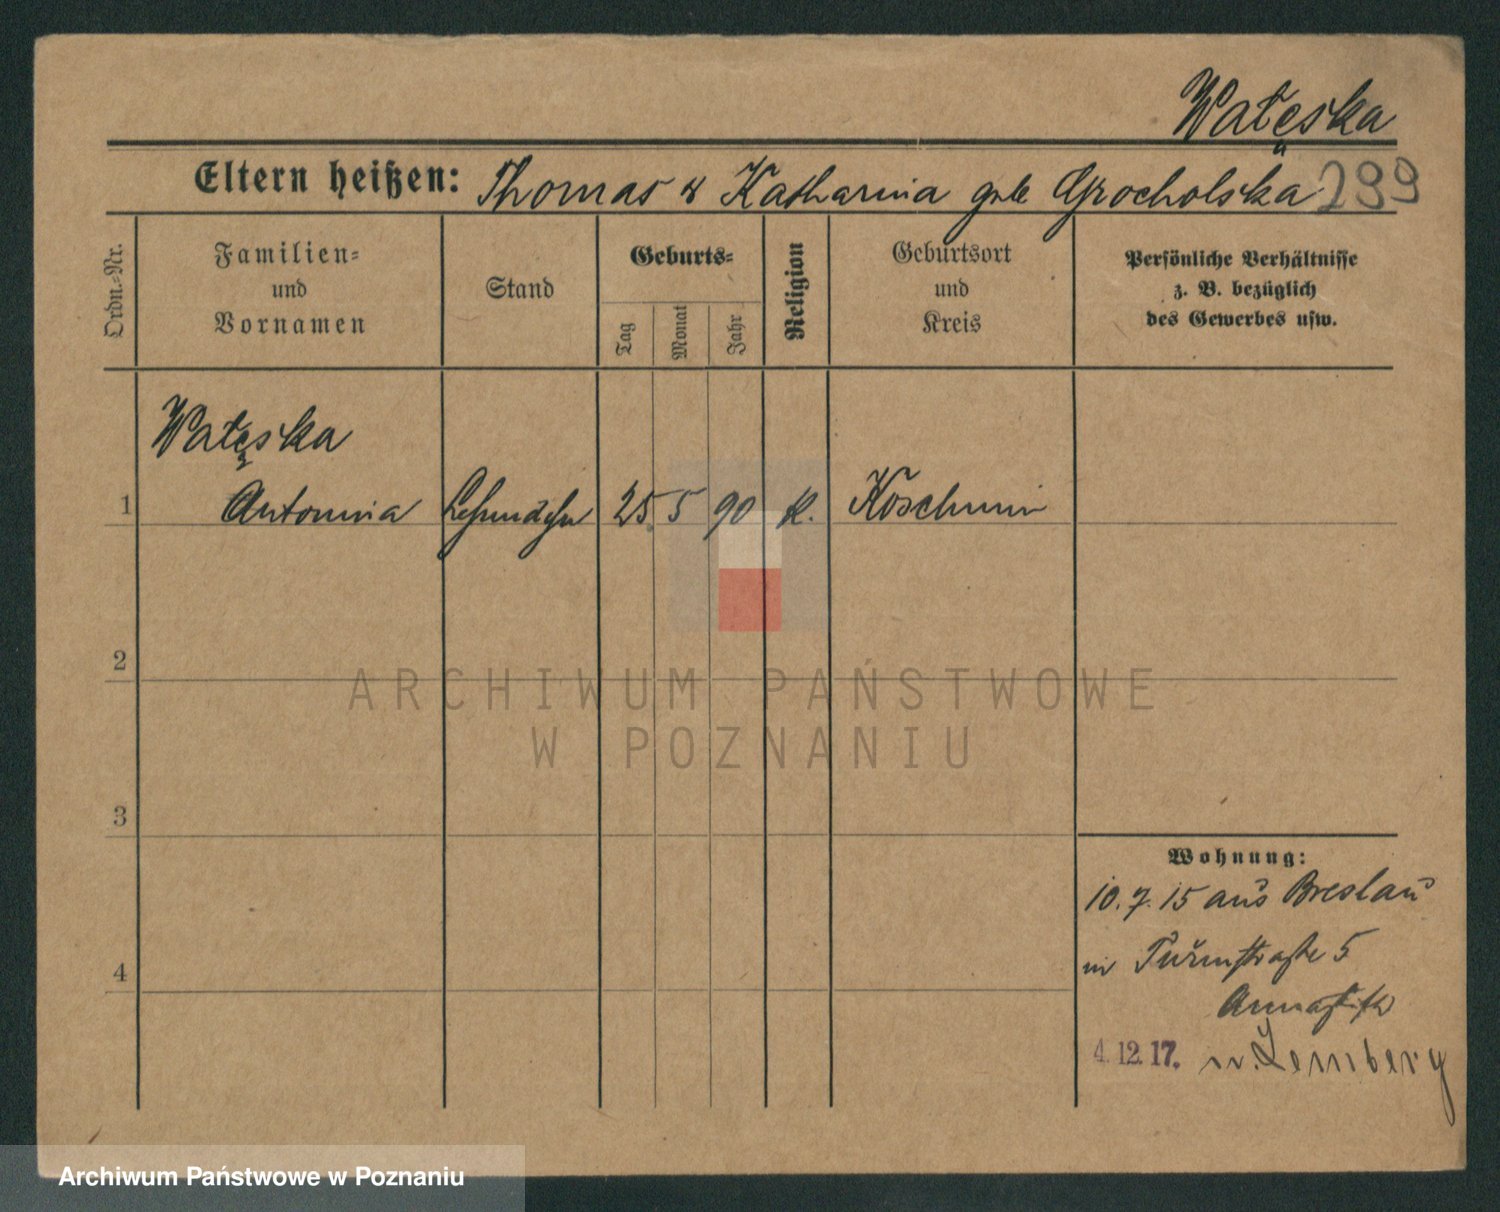 Watęska
Eltern heißen: Thomas u Katharina geb Grocholska 299
Ordn.-Nr.
Familien- und Vornamen
Stand
Geburts-
Tag
Monat
Jahr
Religion
Geburtsort und Kreis
Persönliche Verhältnisse
z. B. bezüglich
des Gewerbes usw.
Watęska
1 Antonina 25. 5 90 k. Koschmin
2
ARCHIWUM PAŃSTWOWE
W POZNANIU
3
4
Wohnung:
10.7.15 aus Breslau
in Turmstraße 5
Annastift
4.12.17. n. Lemberg
Archiwum Państwowe w Poznaniu